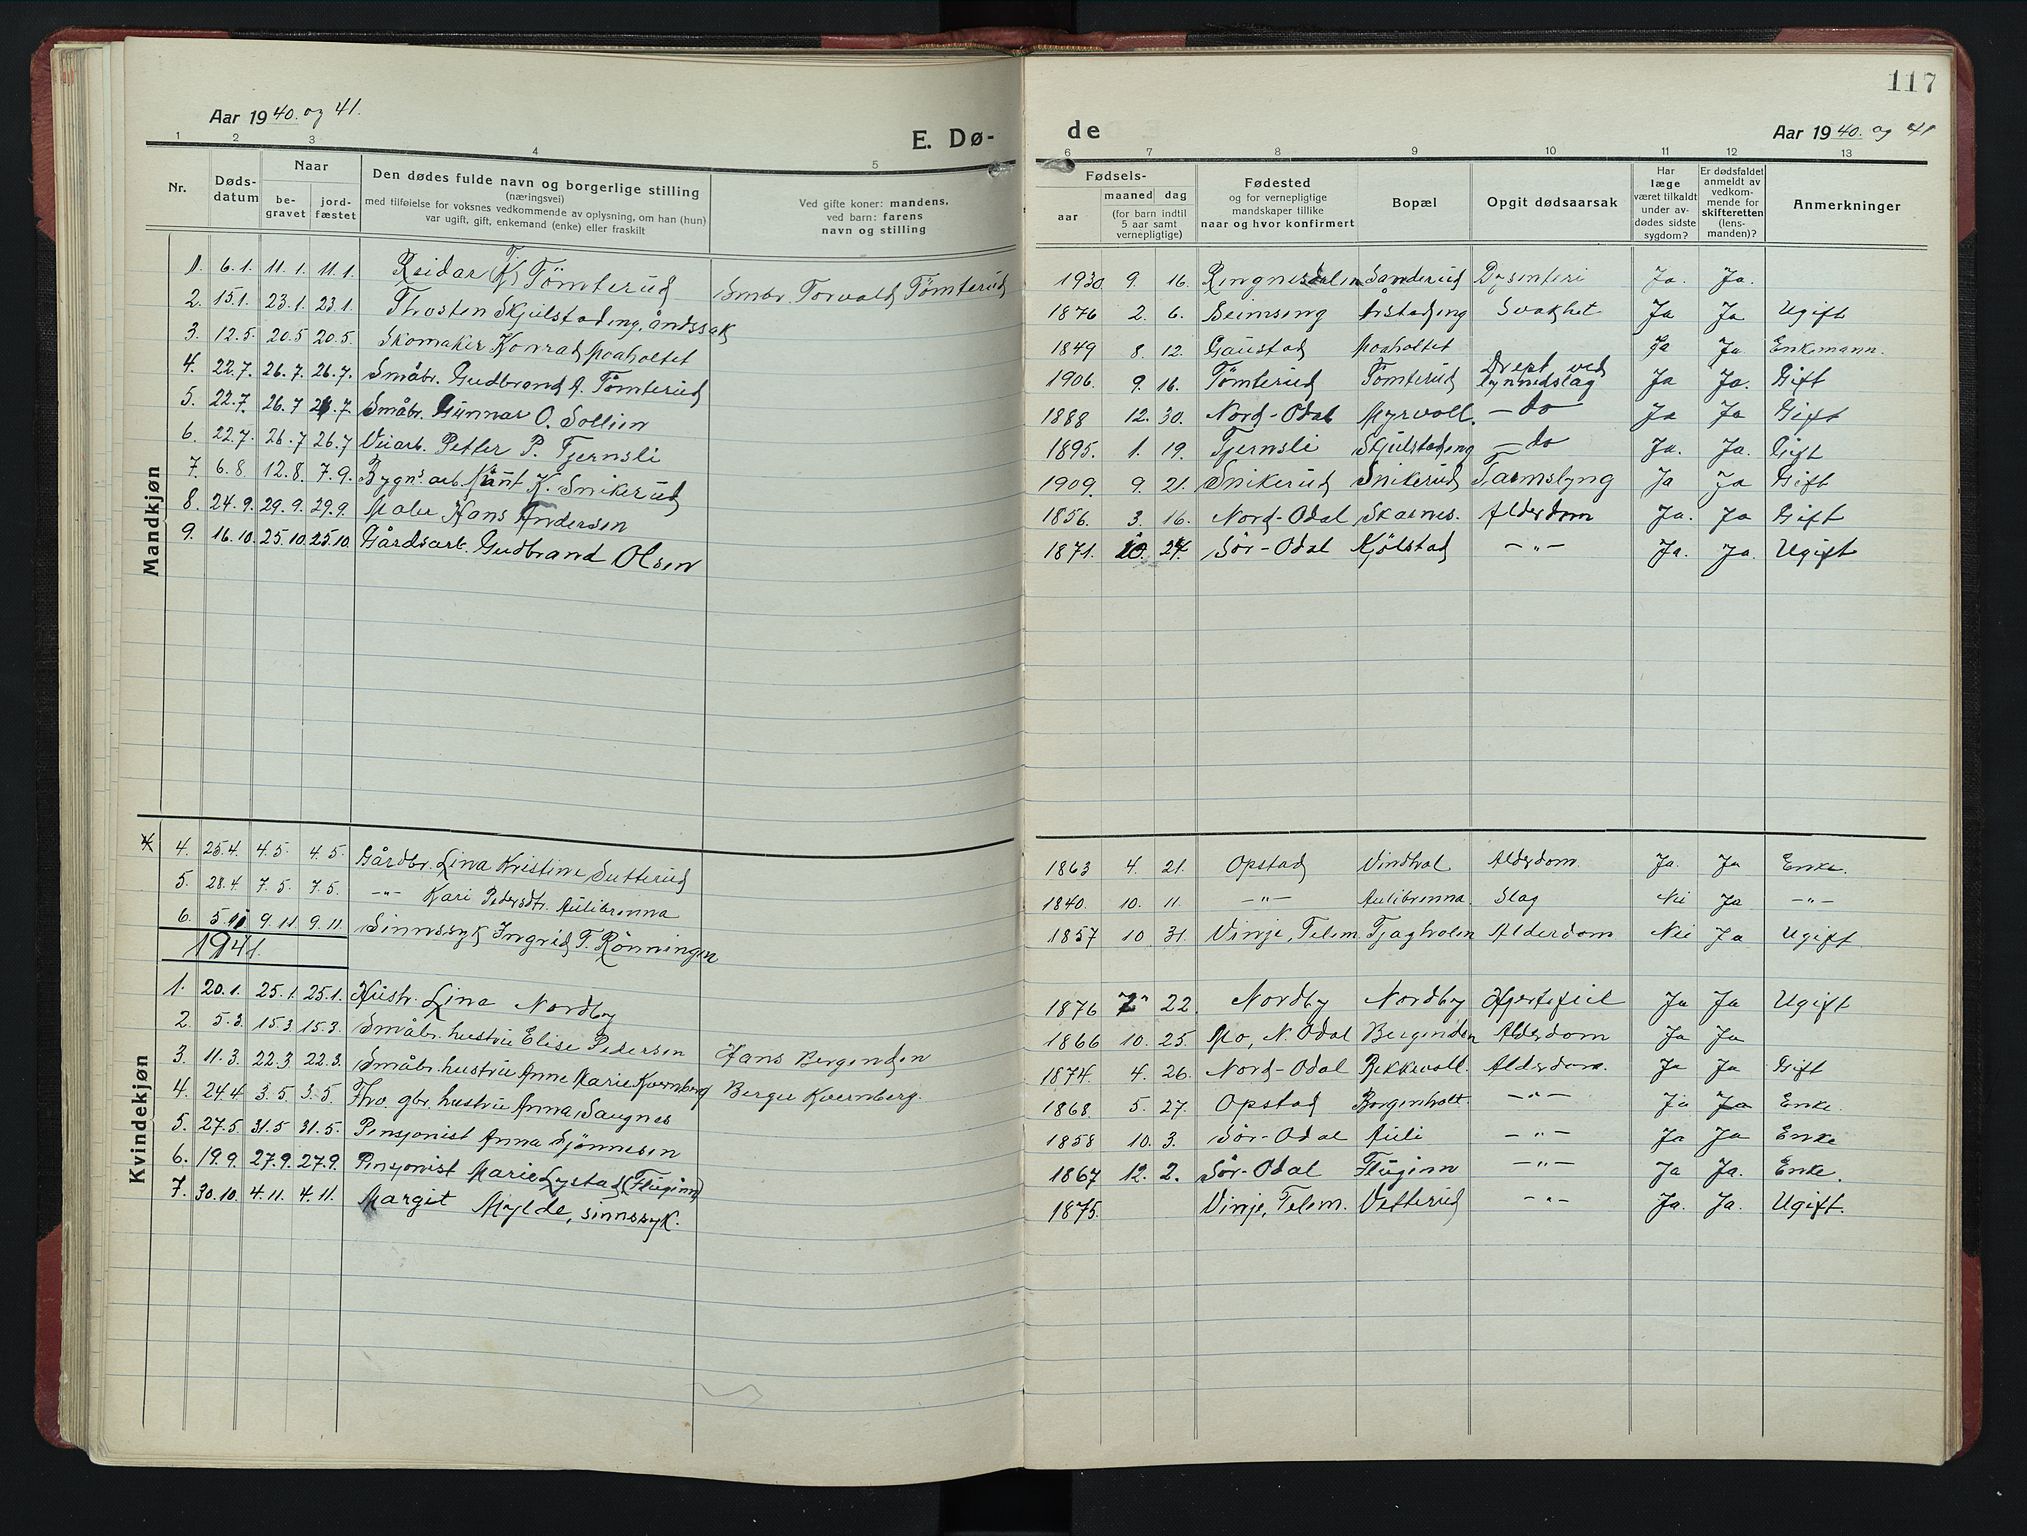 117
Aar 1940. og 41.
E. Dø-
de
Aar 1940. og 41
1 2 3 4 5 6 7 8 9 10 11 12 13
Nr.
Døds-
datum
Naar
be-
gravet
jord-
fæstet
Den dødes fulde navn og borgerlige stilling
(næringsvei)
med tilføielse for voksnes vedkommende av oplysning, om han (hun)
var ugift, gift, enkemand (enke) eller fraskilt
Ved gifte koner: mandens,
ved barn: farens
navn og stilling
Fødsels-
aar
maaned dag
(for barn indtil
5 aar samt
vernepligtige)
Fødested
og for vernepligtige
mandskaper tillike
naar og hvor konfirmert
Bopæl
Opgit dødsaarsak
Har
læge
været tilkaldt
under av-
dødes sidste
sygdom?
Er dødsfaldet
anmeldt av
vedkom-
mende for
skifteretten
(lens-
manden)?
Anmerkninger
Mandkjøn
1. 6.1. 11.1. 11.1. Reidar T. Tömterud Smbr. Torvald Tömterud 1930 9. 16. Ringnesdalen Sanderud Dysenteri Ja. Ja.
2. 15.1. 23.1. 23.1. Thosten Skjulstadeng, åndssak 1876 2. 6. Seimseng Årstadeng Svakhet Ja Ja Ugift
3. 12.5. 20.5 20.5. Skomaker Konrad Moaholtet 1849 8. 12. Gaustad Moaholtet Ja Ja. Enkemann.
4. 22.7. 26.7. 26.7. Småbr. Gudbrand A. Tömterud 1906. 9. 16. Tömterud Tömterud Drept ved lynnedslag Ja Ja. Gift
5. 22.7. 26.7 26.7. Småbr. Gunnar O. Sollien 1888 12. 30. Nord-Odal Myrvoll. — do Ja Ja Gift
6. 22.7. 26.7 26.7 Veiarb. Petter P. Tjernsli 1895. 1. 19. Tjernsli Skjulstadeng — do Ja. Ja. Gift
7. 6.8 12.8. 7.9. Bygn.s arb. Knut K. Snikerud 1909. 9. 21. Snikerud Snikerud Tarmslyng Ja Ja Gift
8. 24.9. 29.9. 29.9. Maler Hans Andersen 1856. 3. 16. Nord-Odal Skarnes. Alderdom Ja. Ja Gift
9. 16.10. 25.10. 25.10. Gårdsarb. Gudbrand Olsen 1871. 10. 24 Sör-Odal Kjölstad — " — Ja. Ja. Ugift
Kvindekjøn
4. 25.4. 4.5. 4.5. Gårdbr. Lina Kristine Sutterud 1863 4. 21. Opstad Vindhol Alderdom. Ja. Ja Enke.
5. 28.4. 7.5. 7.5. —"— Kari Pedersdtr. Aulibrenna 1840. 10. 11. —"— Aulibrenna. Slag Nei Ja —"—
6. 5.11 9.11 9.11. Sinnssyk Ingrid T. Rönningen 1857 10 31. Vinje, Telem Tjagholen Alderdom Nei Ja Ugift
1941.
1. 20.1. 25.1. 25.1. Hustr. Lina Nordby 1876 22. Nordby Nordby Hjertefeil Ja Ja Ugift
2. 5.3. 15.3. 15.3. Småbr. hustru Elise Pedersen Hans Bergenden 1866 10. 25. Mo, N. Odal Bergenden Alderdom Ja Ja
3. 11.3. 22.3. 22.3. Småbr. hustru Anne Marie Kvernberg Berger Kvernberg. 1874. 4. 26. Nord-Odal Bekkevoll. Alderdom. Ja Ja Gift
4. 24.4 3.5. 3.5. Fhv. gbr. hustru Anna Saugnes 1868. 5. 27. Opstad Borgenholt. — " — Ja Ja Enke.
5. 27.5. 31.5 31.5. Pensjonist Anna Sjönnesen 1858 10. 3. Sör-Odal Auli — " — Ja Ja Enke
6. 19.9. 27.9. 27.9. Pensjonist Marie Lystad (Fluginn) 1867 12. 2. Sör-Odal Fluginn — " — Ja Ja. Enke.
7. 30.10. 4.11. 4.11. Margit Mylde, sinnssyk. 1875. Vinje, Telem. Vetterud — " — Ja. Ja. Ugift.